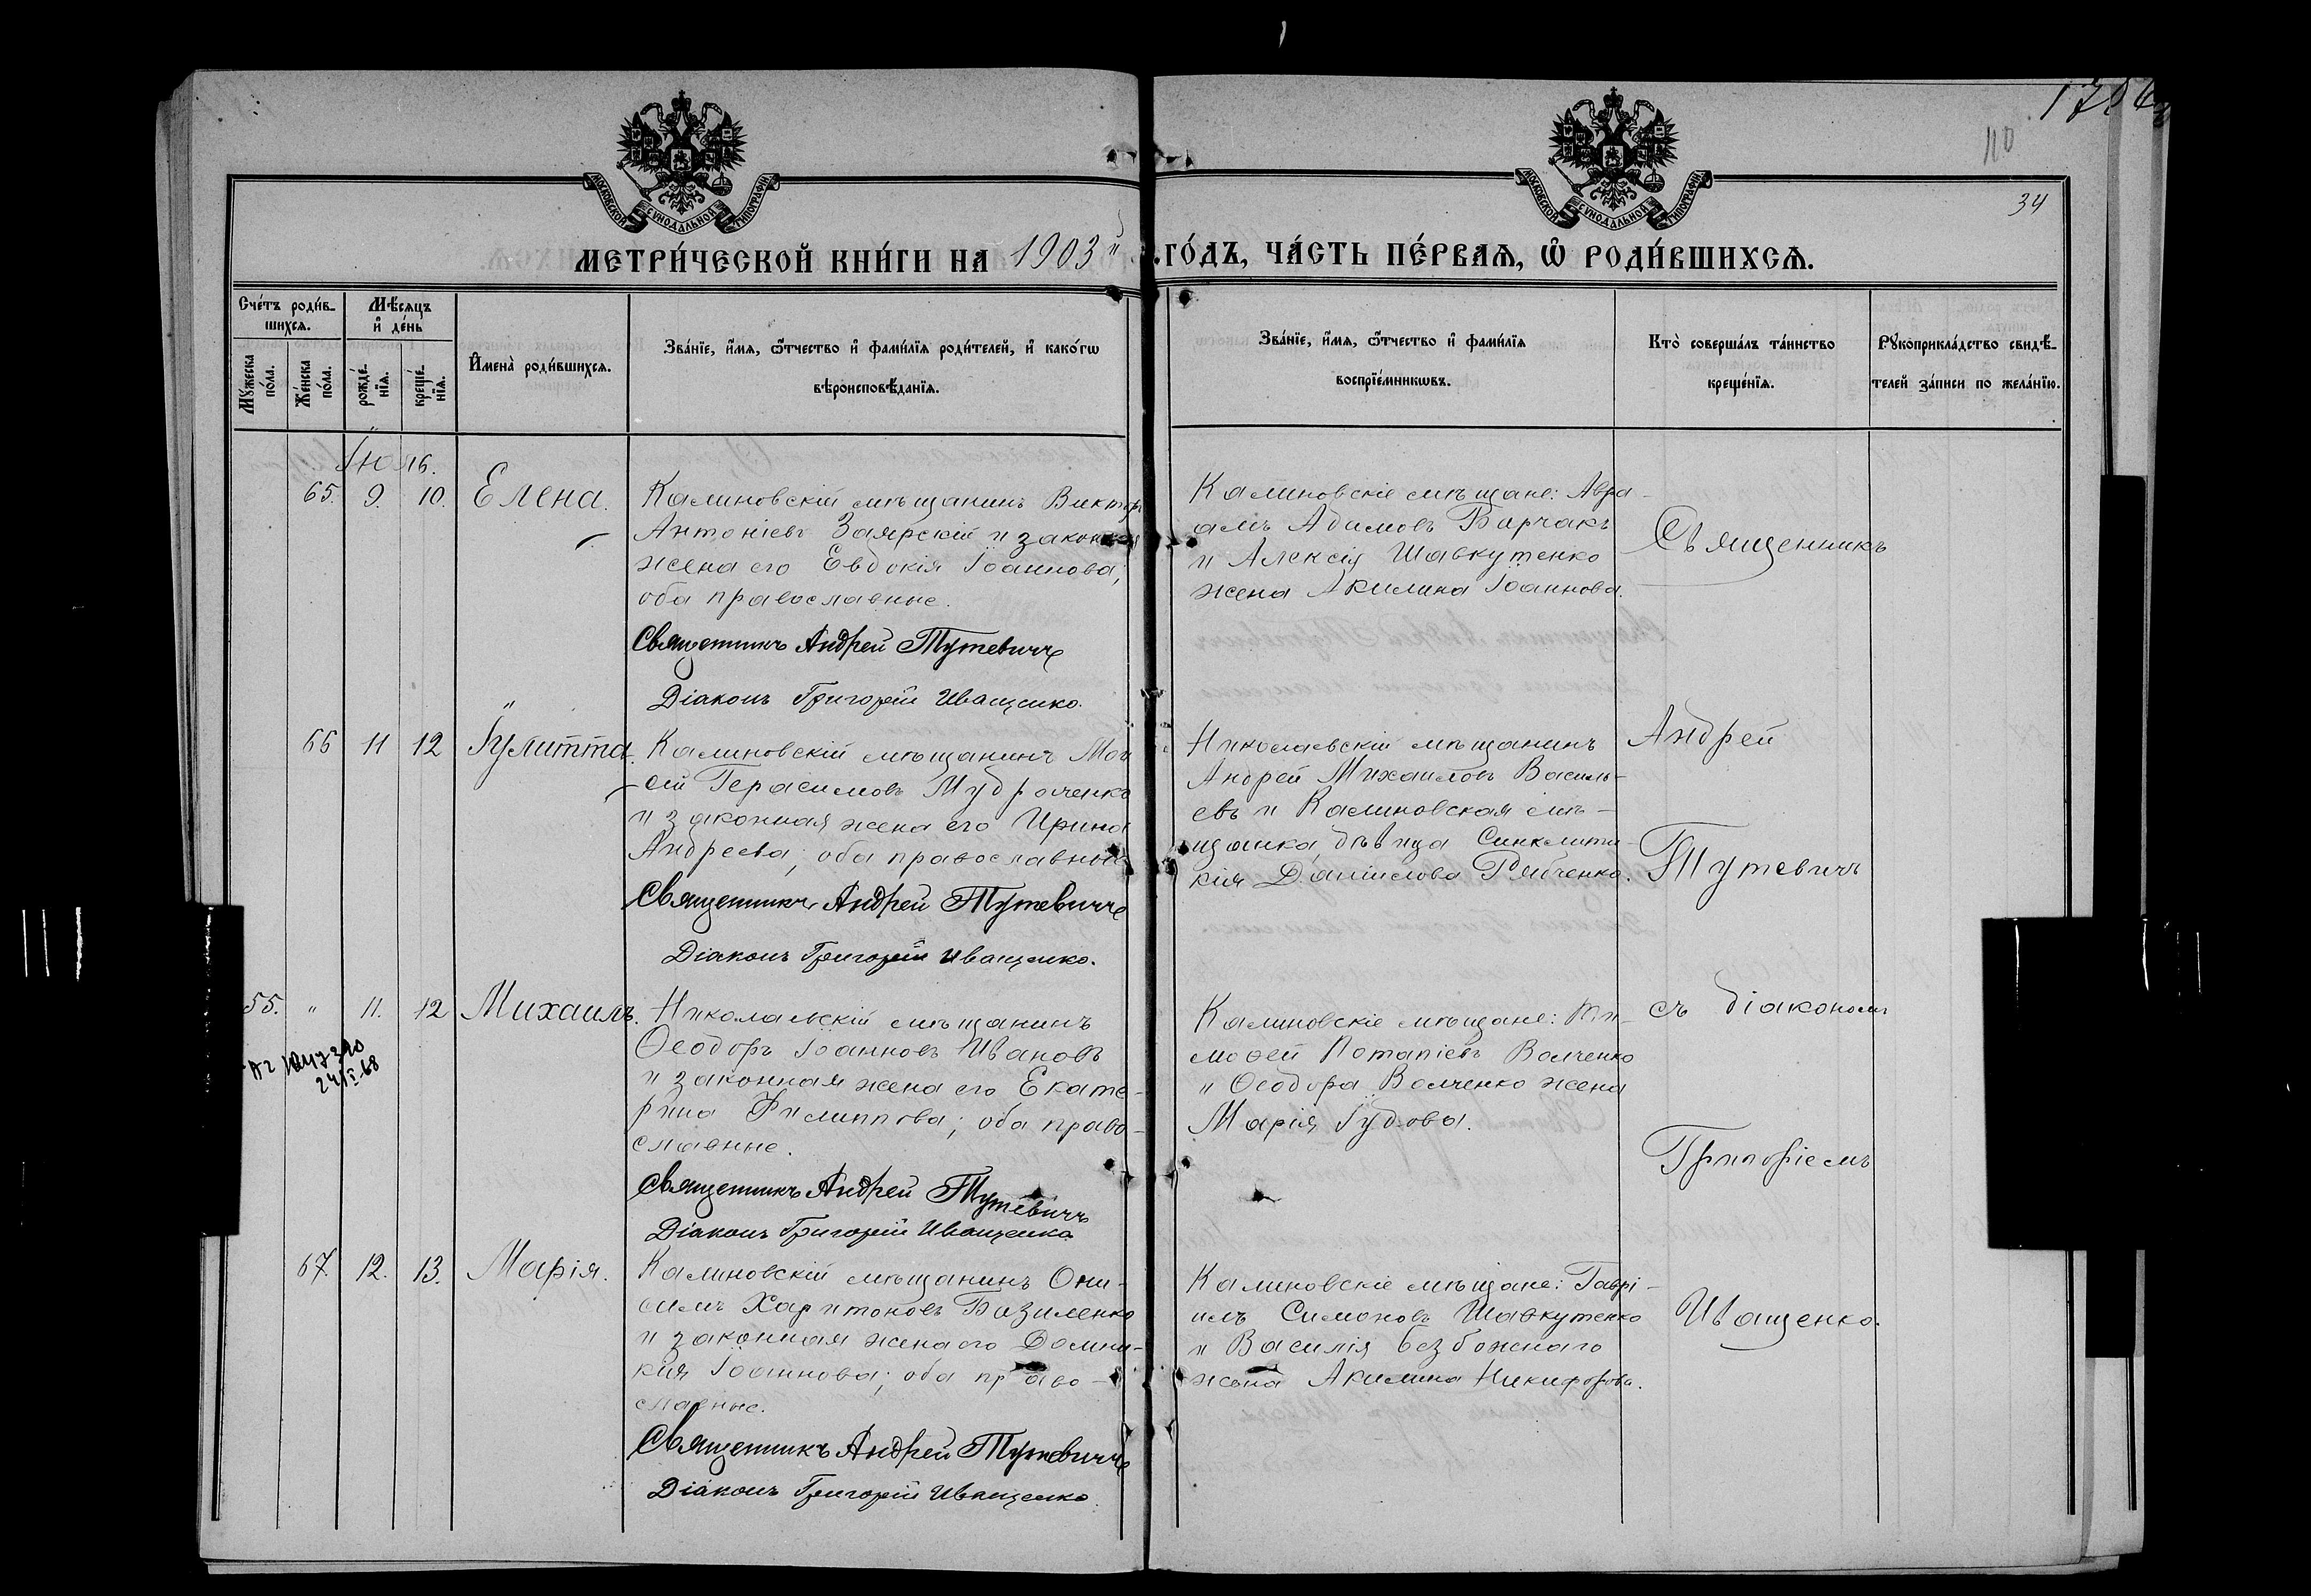 1706
110
34
МОСКОВСКОЙ СУНОДАЛЬНОЙ ТИПОГРАФІИ
МОСКОВСКОЙ СУНОДАЛЬНОЙ ТИПОГРАФІИ
МЕТРИ́ЧЕСКОЙ КНИ́ГИ НА 1903й ГО́ДЪ, ЧА́СТЬ ПЕ́РВАѦ, Ѡ҆ РОДИ́ВШИХСѦ.
Сче́тъ роди́в-
шихсѧ.
Мꙋ́жеска
по́ла.
Же́нска
по́ла.
Мѣ́сѧцъ
и҆ де́нь
рожде́-
нїѧ.
креще́-
нїѧ.
И҆мена̀ роди́вшихсѧ.
Зва́нїе, и҆́мѧ, ѻ҆́тчество и҆ фами́лїѧ роди́телей, и҆ како́гѡ
вѣроисповѣ́данїѧ.
Зва́нїе, и҆́мѧ, ѻ҆́тчество и҆ фами́лїѧ
воспрїе́мникѡвъ.
Кто̀ соверша́лъ та́инство
креще́нїѧ.
Рꙋкоприкла́дство свидѣ́-
телей за́писи по жела́нїю.
Іюль.
65. 9. 10. Елена.
Калиновскій мѣщанинъ Виктор
Антоніевъ Заярскій и законная
жена его Евдокія Іоаннова;
оба православные.
Священникъ Андрей Тутевичъ
Діаконъ Григорій Иващенко.
Калиновскіе мѣщане: Авра-
амъ Адимовъ Барчакъ
и Алексія Шавкутенко
жена Акилина Іоаннова.
66 11 12 Іулитта.
Калиновскій мѣщанинъ Мои
сей Герасимовъ Мудраченко
и законная жена его Ирина
Андреева; оба православные
Священникъ Андрей Тутевичъ
Діаконъ Григорій Иващенко.
Николаевскій мѣщанинъ
Андрей Михаиловъ Василь-
евъ и Калиновская мѣ-
щанка дѣвица Синклити-
кія Даніилова Рябченко.
55. " 11. 12 Михаилъ.
24/I-68
Николаевскій мѣщанинъ
Ѳеодоръ Іоанновъ Ивановъ
и законная жена его Екате-
рина Филиппова; оба право-
славные.
Священникъ Андрей Тутевичъ
Діаконъ Григорій Иващенко
Калиновскіе мѣщане: Ти-
моѳей Потапіевъ Волченко
и Ѳеодора Волченко жена
Марія Іудова.
67. 12. 13. Марія.
Калиновскій мѣщанинъ Они-
симъ Харитоновъ Базиленко
и законная жена его Домни-
кія Іоаннова; оба право-
славные.
Священникъ Андрей Тутевичъ
Діаконъ Григорій Иващенко.
Калиновскіе мѣщане: Гаврі-
илъ Симоновъ Шавкутенко
и Василія Безбожнаго
жена Акилина Никифорова.
Священникъ
Андрей
Тутевичъ
съ діакономъ
Григоріемъ
Иващенко.